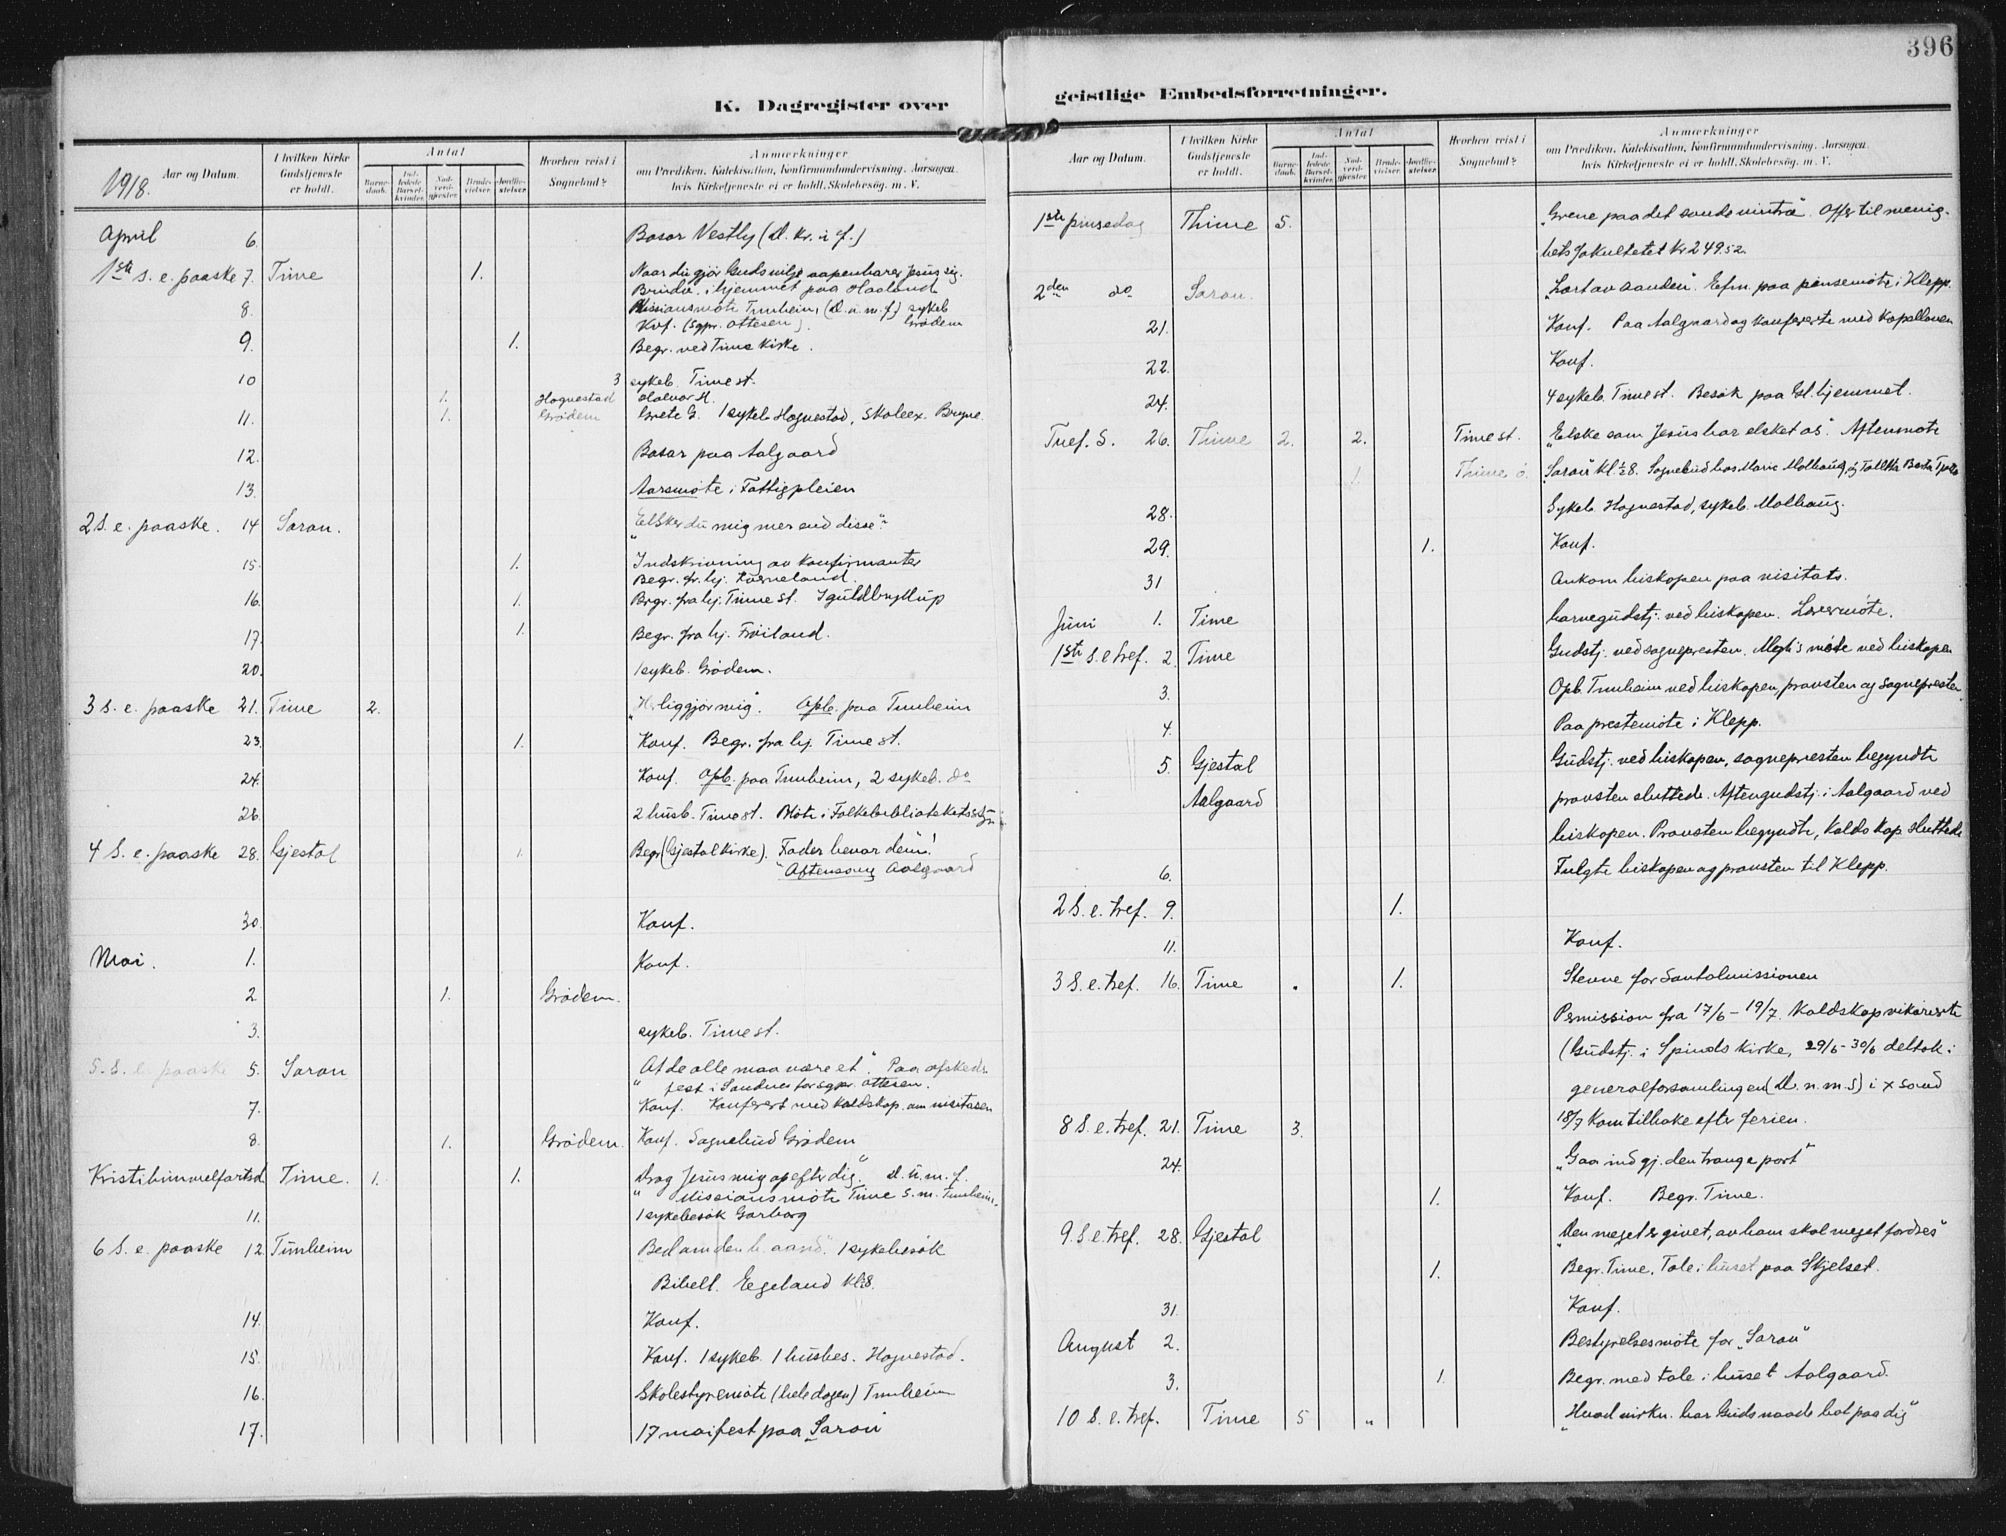 396
K. Dagregister over
Aar og Datum.
I hvilken Kirke Gudstjeneste er holdt.
Antal
Barne-daab.
Ind-ledede Barsel-kvinder.
Nad-verd-gjæster.
Brude-vielser.
Jordfæ-stelser.
Hvorhen reist i Sognebud?
Anmærkninger
om Prædiken, Katekisation, Konfirmandundervisning, Aarsagen
hvis Kirketjeneste ei er holdt, Skolebesøg. m. V.
1918.
April 6. Basar Vestly (D. kr. u. f.)
1ste s. e. paaske 7. Time 1. Naar du gjør Guds vilje aapenbarer Jesus sig.
Brudev. i hjemmet paa Haaland
8. Missionsmøte Tunheim, (D. u. m. f.) sykeb.
Kof. (Sgpr. Ottesen). Grødem
9. 1. Begr. ved Time Kirke.
10 3 sykeb. Time st.
1. Hognestad Halvor H.
11. 1. Grødem Grete G. 1 sykeb. Hognestad, skoleex. Bryne.
12. Basar paa Aalgaard
13. Aarsmøte i Fattigpleien
2 S. e. paaske. 14 Saron. "Elsker du mig mer end disse"
15. 1. Indskrivning av konfirmanter
Begr. fr. hj. Tverneland.
16. 1. Begr. fra hj. Time st. 1 guldbryllup
17. 1. Begr. fra hj. Frøiland.
20. 1 sykeb. Grødem.
3 s. e. paaske 21. Time 2. "Herliggjør mig". Opb. paa Tunheim
23. 1. Konf. Begr. fra hj. Time st.
24. Konf. Opb. paa Tunheim, 2 sykeb. do
26. 2 husb. Time st. Møte i Folkebibliotekets
4 S. e. paaske 28. Gjestal 1. Begr. (Gjestal Kirke). Fader bevar dem!
"Aftensang Aalgaard
30 Konf.
Mai. 1. Konf.
2 1. Grødem.
3. sykeb. Time st.
5. S. e. paaske 5. Saron "At de alle maa være et". Paa afskeds-
fest i Sandnes for sgpr. Ottesen.
7. Konf. Konferert med kaldskap. om visitasen
8. 1. Grødem. Konf. Sognebud Grødem
Kristihimmelfartsd. Time. 1. 1. "Drag Jesus mig op efter dig". D. u. m. f.
Missionsmøte Time s. m. Tunheim.
11. 1 sykebesøk Garborg
6 S. e. paaske 12. Tunheim "Bed om den h. aand". 1 sykebesøk
Bibell. Eegeland Kl. 8.
14. Konf.
15. Konf. 1 sykeb. 1 husbes. Hognestad.
16. Skolestyremøte (hele dagen) Tunheim
17. 17 maifest paa Saron
geistlige Embedsforretninger.
Aar og Datum.
I hvilken Kirke Gudstjeneste er holdt.
Antal
Barne-daab.
Ind-ledede Barsel-kvinder.
Nad-verd-gjæster.
Brude-vielser.
Jordfæ-stelser.
Hvorhen reist i Sognebud?
Anmærkninger
om Prædiken, Katekisation, Konfirmandundervisning, Aarsagen,
hvis Kirketjeneste ei er holdt, Skolebesøg. m. V.
1ste pinsedag Thime 5. "Grene paa det sande vintræ". Offer til menig-
hets fakultetet kr 249.52
2den do Saron. "Lært av aanden". Efm. paa pinsemøte i Klepp.
21. Konf. Paa Aalgaard og konfererte med Kapellanen
22. Konf.
24. 4 sykeb. Time st. Besøk paa Gl. hjemmet.
Tref. S. 26. Thime 2. 2. Time st. "Elske som Jesus har elsket os". Aftenmøte
1. Thime ø. "Saron" kl. ½8. Sognebud hos Marie Molhaug,
28. Sykeb. Hognestad, sykeb. Molhaug.
29. 1. Konf.
31 Ankom biskopen paa visitats.
Juni 1. Time barnegudstj. ved biskopen. Lærermøte.
1ste S. e. tref. 2. Time Gudstj. ved sognepresten. Megh's møte ved biskopen
3. Opb. Tunheim ved biskopen, provsten og sognepresten.
4. Paa prestemøte i Klepp.
5. Gjestal Gudstj. ved biskopen, sognepresten begyndte
Aalgaard provsten sluttede. Aftengudstj. i Aalgaard ved
biskopen. Provsten begyndte, Kaldskap. sluttede
6. Fulgte biskopen og provsten til Klepp.
2 S. e. tref. 9. 1.
11. Konf.
3 S. e. tref. 16. Time 1. Stevne for Santalmissionen
Permission fra 17/6 – 19/7. Kaldskap vikarierte
(Gudstj. i Spinds kirke, 29/6 - 30/6 deltok i
generalforsamlingen (D. n. m. S) i x sand
8 S. e. tref. 21. Time 3. 18/7 Kom tilbake efter ferien.
24. "Gaa ind gj. den trange port"
1. Konf. Begr. Time.
9. S. e. tref. 28. Gjestal "Den meget er givet, av ham skal meget fordres"
1. Begr. Time. Tale i huset paa Skjelset.
31. Konf.
August 2. Bestyrelsesmøte for "Saron"
3. 1. Begr. med tale i huset Aalgaard.
10 S. e. tref. Time 5 " "Hvad virkn. har Guds naade hat paa dig"